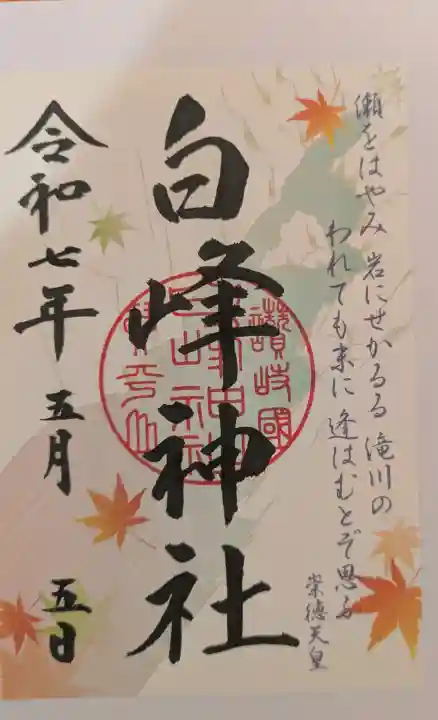 瀬をはやみ 岩にせかるる 滝川の
われても末に 逢はむとぞ思ふ
崇徳天皇
白峰神社
令和七年 五月 五日
讃岐國